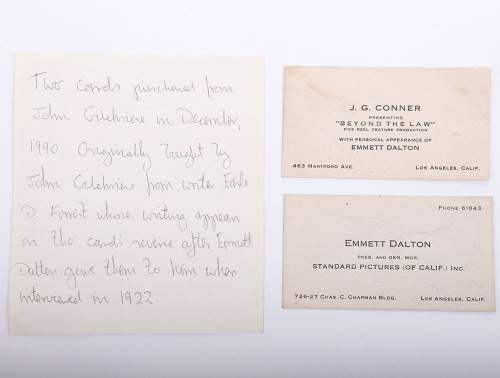 Two cards purchased from
John Gilchriese in December,
1990 Originally bought by
John Gilchriese from writer Earle
D. Forest whose writing appears
on the cards reverse after Emmett
Dalton gave them to him when
interviewed in 1922.
J. G. CONNER
PRESENTING
"BEYOND THE LAW"
FIVE REEL FEATURE PRODUCTION
WITH PERSONAL APPEARANCE OF
EMMETT DALTON
463 HARTFORD AVE. LOS ANGELES, CALIF.
PHONE 61843
EMMETT DALTON
PRES. AND GEN. MGR.
STANDARD PICTURES (OF CALIF.) INC.
726-27 CHAS. C. CHAPMAN BLDG. LOS ANGELES, CALIF.